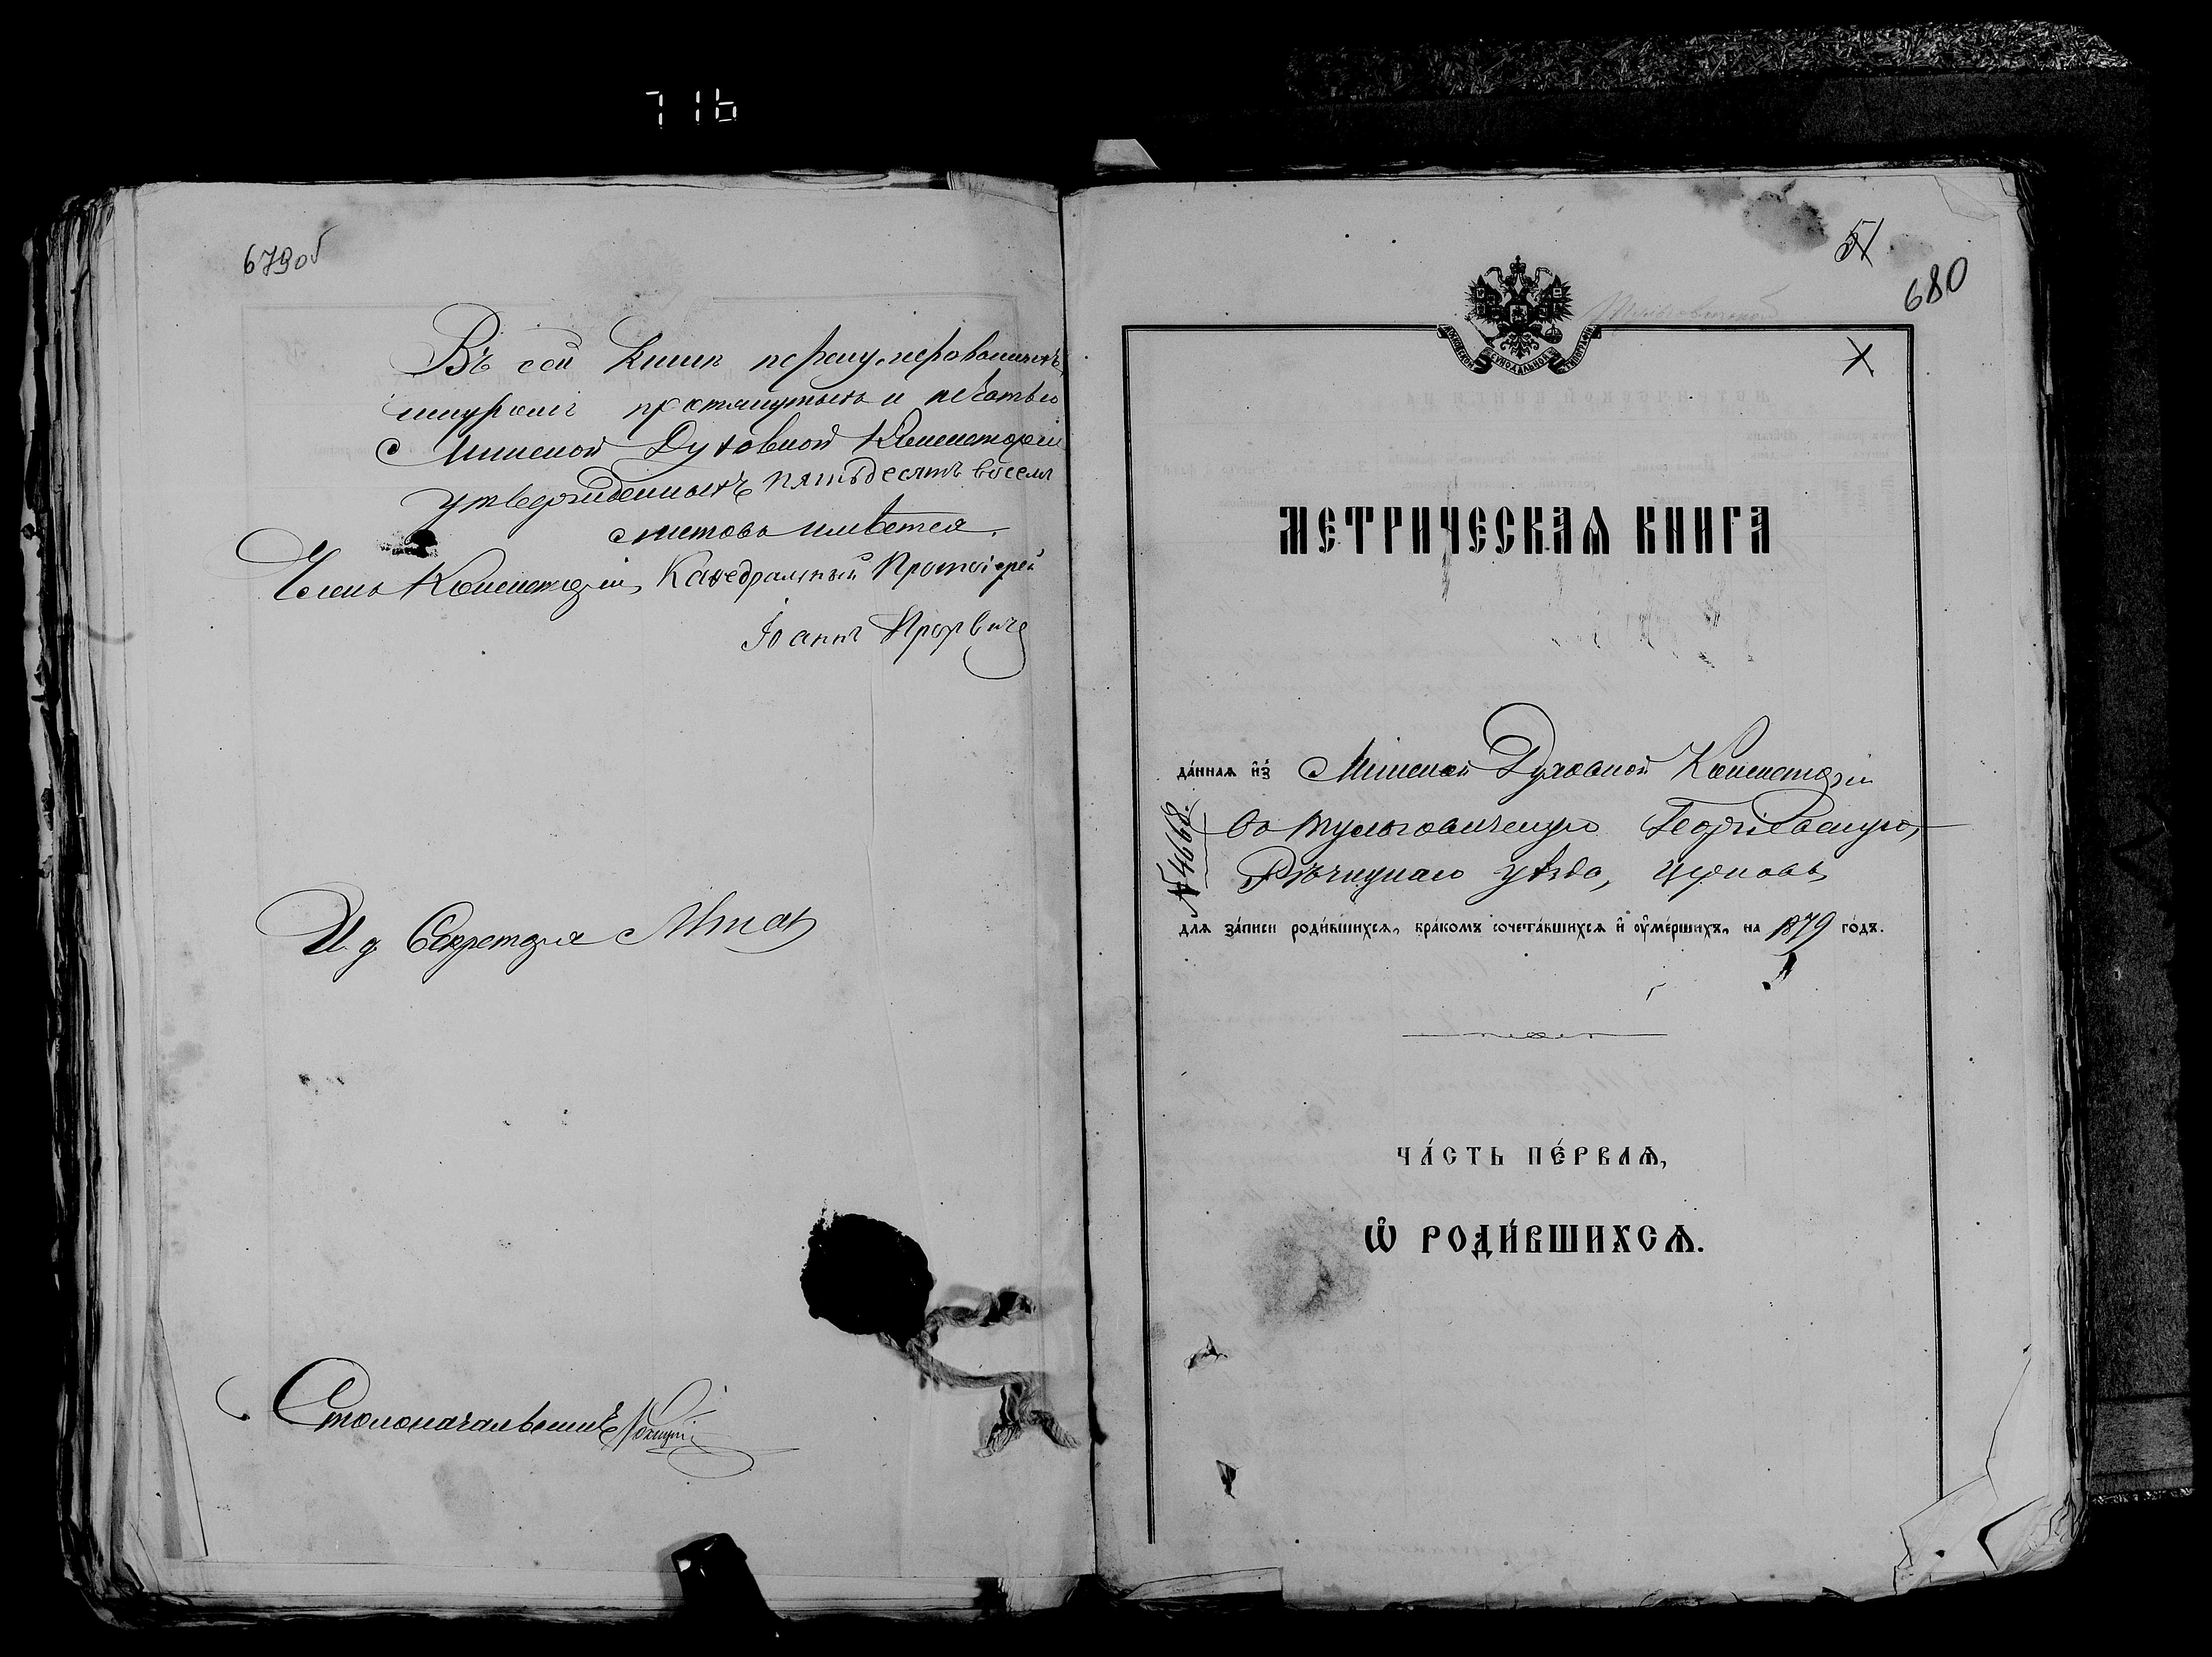 716
679об
Въ сей книгѣ перенумерованныхъ,
шнуромъ протянутыхъ и печатью
Минской Духовной Консисторіи
утвержденныхъ пятьдесятъ восемь
листовъ имѣется.
Членъ Консисторіи, Каѳедральный Протоіерей
Іоаннъ
И д Секретаря
Столоначальникъ
57
680
МОСКОВСКОЙ СУНОДАЛЬНОЙ ТИПОГРАФІИ
МЕТРИЧЕСКАѦ КНИГА
да́ннаѧ и҆з̾ Минской Духовной Консисторіи
№ 4668.
въ Тульговичскую Георгіевскую,
Рѣчицкаго уѣзда, церковь
для за́писи роди́вшихсѧ, бра́комъ сочета́вшихсѧ и҆ ᲂу҆ме́ршихъ, на 1879 го́дъ.
ЧА́СТЬ ПЕ́РВАѦ,
Ѽ РОДИ́ВШИХСѦ.